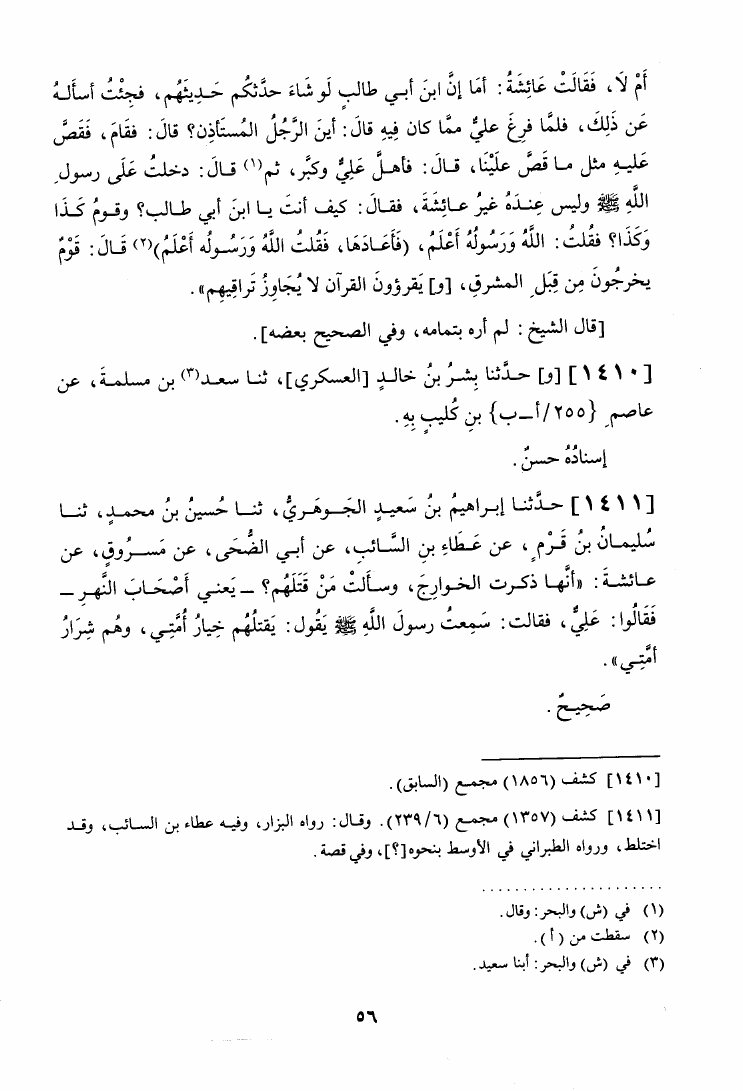 أَمْ لَا، فَقَالَتْ عَائِشَةُ: أمَا إنَّ ابنَ أبي طالبٍ لَو شاءَ حدَّثكُم حَديثَهُم، فجِئْتُ أسألهُ
عَن ذلِكَ، فلمَّا فرِغَ عليٌّ ممَّا كان فِيهِ قالَ: أينَ الرَّجُلُ المُستَأذِن؟ قالَ: فقَامَ، فَقَصَّ
عَليهِ مثل ما قَصَّ علَيْنَا، قالَ: فأهلَّ عَلِيٌّ وكبَّر، ثم(١) قالَ: دخلتُ عَلَى رسولِ
اللَّهِ ﷺ وليس عِندَهُ غيرُ عائِشَةَ، فقالَ: كيف أنتَ يا ابنَ أبي طالب؟ وقومُ كَذا
وَكَذا؟ فقُلتُ: اللَّهُ وَرَسُولُهُ أعْلَمُ، (فَأَعَادَهَا، فَقُلتُ اللَّهُ وَرَسُولُه أَعْلَمُ)(٢) قَالَ: قَوْمٌ
يخرجُونَ مِن قِبَلِ المشرقِ، [و] يَقرؤونَ القرآن لا يُجَاوِزُ تَراقِيهِم».
[قال الشيخ: لم أره بتمامه، وفي الصحيح بعضه].
[١٤١٠] [و] حدَّثنا بِشرُ بنُ خالدٍ [العسكري]، ثنا سعد(٣) بن مسلمةَ، عن
عاصمِ {٢٥٥/أ-ب} بنِ كُليبٍ بِهِ.
إسنادُهُ حسنٌ.
[١٤١١] حدَّثنا إبراهيمُ بنُ سَعيدٍ الجَوهَريُّ، ثنا حُسينُ بنُ محمدٍ، ثنا
سُليمانُ بنُ قَرْمٍ، عن عَطَاءِ بنِ السَّائبِ، عن أبي الضُّحَى، عن مَسروقٍ، عن
عائشةَ: «أنَّها ذكرت الخوارجَ، وسألتْ مَنْ قَتَلَهُم؟ - يَعني أَصْحَابَ النَّهرِ -
فَقَالُوا: عَلِيٌّ، فقالت: سَمِعتُ رسولَ اللَّهِ ﷺ يَقُول: يَقتلُهُم خِيارُ أُمَّتِي، وهُم شِرَارُ
أمَّتِي».
صَحِيحٌ.
[١٤١٠] كشف (١٨٥٦) مجمع (السابق).
[١٤١١] كشف (١٣٥٧) مجمع (٢٣٩/٦). وقال: رواه البزار، وفيه عطاء بن السائب، وقد
اختلط، ورواه الطبراني في الأوسط بنحوه[؟]، وفي قصة.
(١) في (ش) والبحر: وقال.
(٢) سقطت من (أ).
(٣) في (ش) والبحر: أبنا سعيد.
٥٦